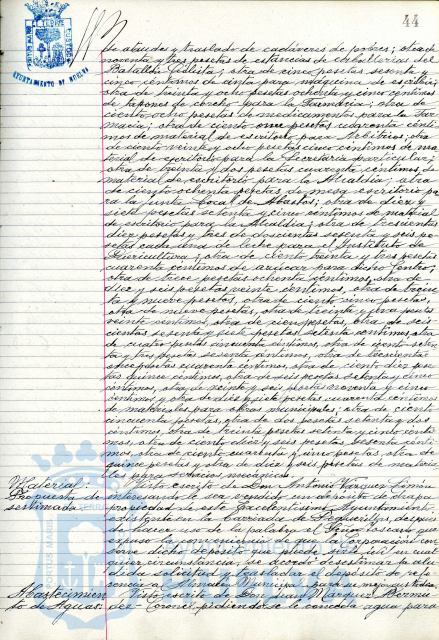 44
AYUNTAMIENTO DE HUELVA
de ataudes y traslado de cadáveres de pobres; otra de
noventa y tres pesetas de estancias de caballerias del
Batallón Ciclista; otra de cinco pesetas sesenta y
cinco céntimos de cinta para máquina de escribir;
otra de treinta y ocho pesetas ochenta y cinco céntimos
de tapones de corcho para la Farmacia; otra de
ciento ocho pesetas de medicamentos para la Far
macia; otra de ciento once pesetas cuarenta cénti
mos de material de escritorio para Arbitrios; otra
de ciento veinte y ocho pesetas cinco céntimos de ma
terial de escritorio para la Secretaria particular;
otra de treinta y dos pesetas cuarenta céntimos de
material de escritorio para la Alcaldia; otra
de ciento ochenta pesetas de mesa escritorio pa
ra la Junta Local de Abastos; otra de diez y
siete pesetas setenta y cinco céntimos de material
de escritorio para la Alcaldia; otra de trescientas
diez pesetas y tres de doscientas sesenta y seis pe
setas cada una de leche para el Instituto de
Puericultura; otra de ciento treinta y tres pesetas
cuarenta céntimos de azucar para dicho Centro;
otra de trece pesetas ochenta céntimos, otra de
diez y seis pesetas veinte céntimos, otra de trein
ta y nueve pesetas, otra de ciento cinco pesetas,
otra de nueve pesetas, otra de treinta y tres pesetas
veinte céntimos, otra de cien pesetas, otra de seis
cientas sesenta y siete pesetas setenta céntimos, otra
de cuatro pesetas cincuenta céntimos, otra de ciento seten
ta y tres pesetas sesenta céntimos, otra de trescientas
pesetas cuarenta céntimos, otra de ciento diez pese
tas quince céntimos, otra de seis pesetas setenta y cinco
céntimos, otra de veinte y seis pesetas noventa y cinco
céntimos y otra de diez y siete pesetas cuarenta céntimos
de materiales para obras municipales; otra de ciento
cincuenta pesetas, otra de dos pesetas setenta y dos
céntimos, otra de treinta pesetas setenta y cinco cénti
mos, otra de ciento diez y seis pesetas sesenta cénti
mos, otra de ciento cuarenta y una pesetas, otra de
quince pesetas y otra de diez y seis pesetas de materia
les para servicios mecánicos.
Material:
Propuesta de
sestimada
Visto escrito de Don Antonio Vazquez Limón
interesando le sea vendido un depósito de chapa
propiedad de este Excelentisimo Ayuntamiento,
existente en la barriada de Pesquerias, después
de hacer uso de la palabra el Señor que
expuso la conveniencia de que la Corporación con
serve dicho depósito que puede serle útil en cual
quier circunstancia, se acordó desestimar la alu
dida solicitud y trasladar el depósito de re
ferencia al Almacen Municipal para su mejor custodia
Abastecimien
to de Aguas:
Visto escrito de Don Juan Márquez Bermu
dez Coronel pidiendo se le conceda agua para